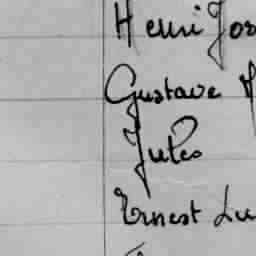 Henri Jos
Gustave
Jules
Ernest Lu